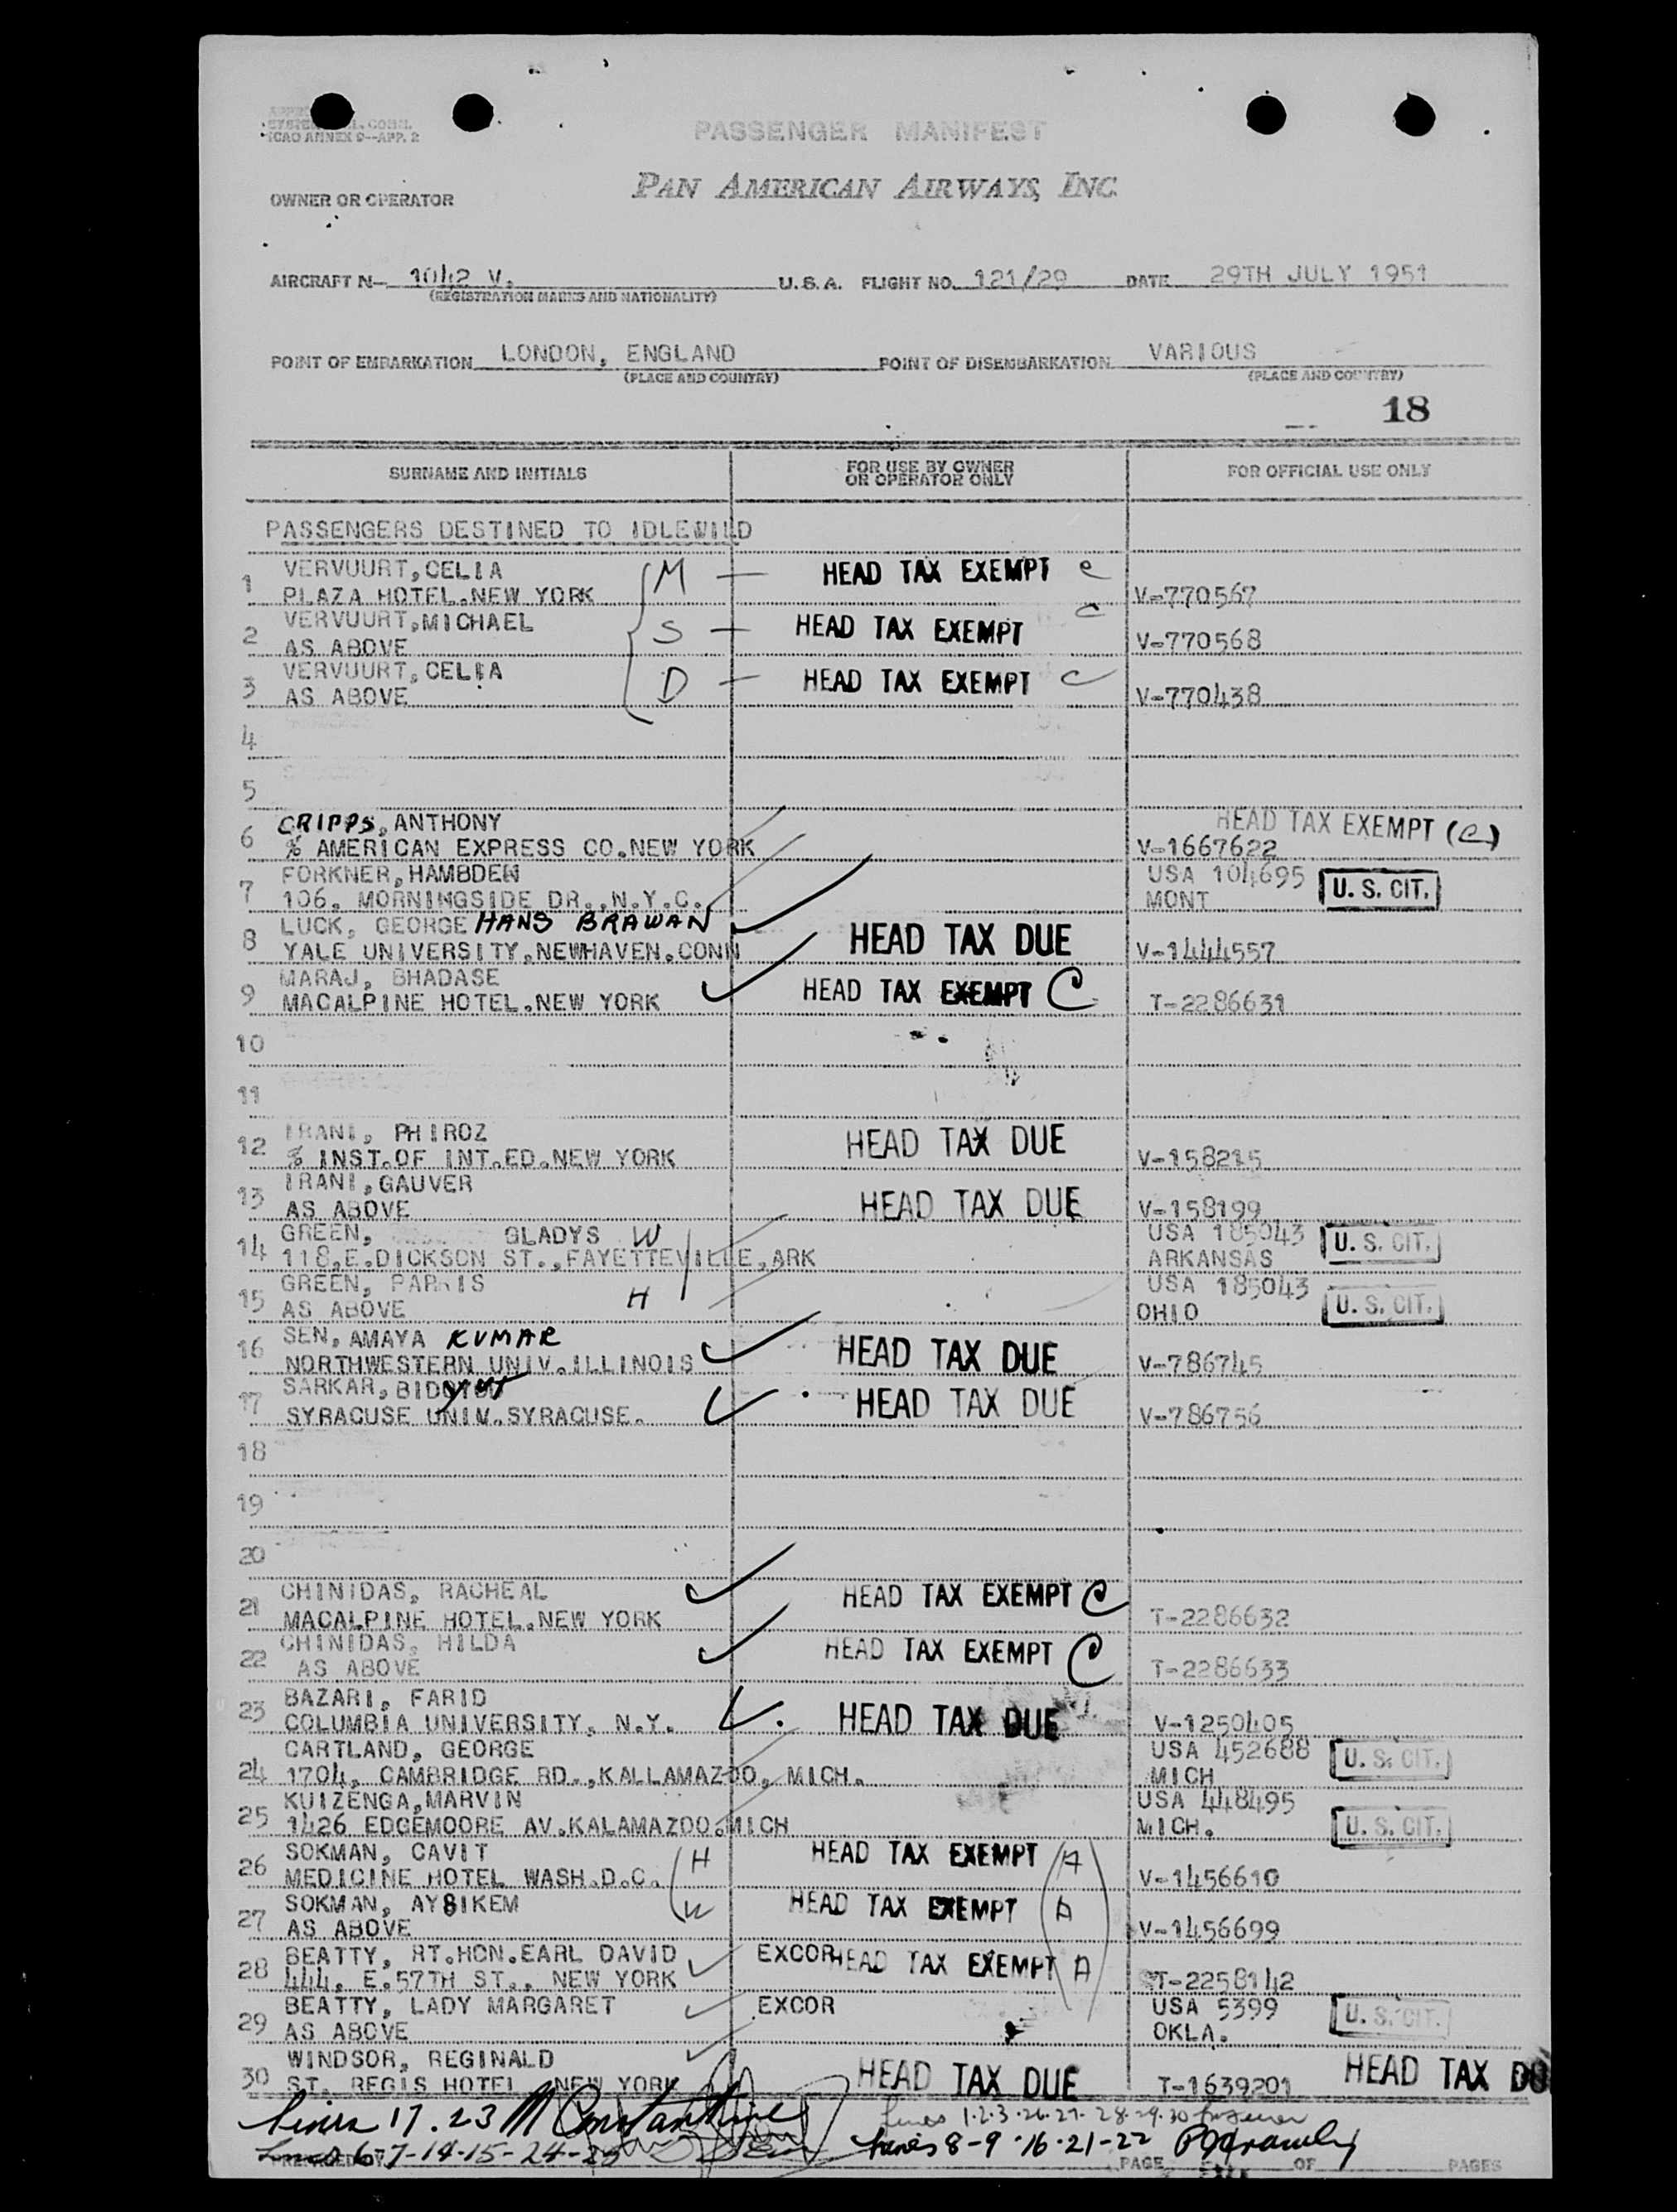 ICAO ANNEX 9--APP. 2
PASSENGER MANIFEST
OWNER OR OPERATOR
PAN AMERICAN AIRWAYS, INC.
AIRCRAFT N- 1042 V. U.S.A. FLIGHT NO. 121/29 DATE 29TH JULY 1951
(REGISTRATION MARKS AND NATIONALITY)
POINT OF EMBARKATION LONDON, ENGLAND POINT OF DISEMBARKATION VARIOUS
(PLACE AND COUNTRY) (PLACE AND COUNTRY)
18
SURNAME AND INITIALS FOR USE BY OWNER OR OPERATOR ONLY FOR OFFICIAL USE ONLY
PASSENGERS DESTINED TO IDLEWILD
1 VERVUURT, CELIA M HEAD TAX EXEMPT C
PLAZA HOTEL.NEW YORK V-770567
2 VERVUURT,MICHAEL S HEAD TAX EXEMPT C
AS ABOVE V-770568
3 VERVUURT, CELIA D HEAD TAX EXEMPT C
AS ABOVE V-770438
4
5
6 CRIPPS, ANTHONY HEAD TAX EXEMPT (C)
% AMERICAN EXPRESS CO.NEW YORK V-1667622
7 FORKNER, HAMBDEN USA 104695 U. S. CIT.
106. MORNINGSIDE DR.,N.Y.C. MONT
8 LUCK, GEORGE HANS BRAWAN HEAD TAX DUE
YALE UNIVERSITY.NEWHAVEN.CONN V-1444557
9 MARAJ, BHADASE HEAD TAX EXEMPT C
MACALPINE HOTEL.NEW YORK T-2286631
10
11
12 IRANI, PHIROZ HEAD TAX DUE
% INST.OF INT.ED.NEW YORK V-158215
13 IRANI,GAUVER HEAD TAX DUE
AS ABOVE V-158199
14 GREEN, GLADYS W USA 185043 U. S. CIT.
118.E.DICKSON ST.,FAYETTEVILLE,ARK ARKANSAS
15 GREEN, H USA 185043 U. S. CIT.
AS ABOVE OHIO
16 SEN, AMAYA KUMAR HEAD TAX DUE
NORTHWESTERN UNIV.ILLINOIS V-786745
17 SARKAR, HEAD TAX DUE
SYRACUSE UNIV.SYRACUSE. V-786756
18
19
20
21 CHINIDAS, RACHEAL HEAD TAX EXEMPT C
MACALPINE HOTEL.NEW YORK T-2286632
22 CHINIDAS, HILDA HEAD TAX EXEMPT C
AS ABOVE T-2286633
23 BAZARI, FARID HEAD TAX DUE
COLUMBIA UNIVERSITY, N.Y. V-1250405
24 CARTLAND, GEORGE USA 452688 U. S. CIT.
1704, CAMBRIDGE RD.,KALLAMAZOO, MICH. MICH
25 KUIZENGA,MARVIN USA 448495 U. S. CIT.
1426 EDGEMOORE AV.KALAMAZOO.MICH MICH.
26 SOKMAN, CAVIT H HEAD TAX EXEMPT A
MEDICINE HOTEL WASH.D.C. V-1456610
27 SOKMAN, AYSIKEM W HEAD TAX EXEMPT A
AS ABOVE V-1456699
28 BEATTY, RT.HON.EARL DAVID EXCOR HEAD TAX EXEMPT A
444, E.57TH ST., NEW YORK T-2258142
29 BEATTY, LADY MARGARET EXCOR USA 5399 U. S. CIT.
AS ABOVE OKLA.
30 WINDSOR, REGINALD HEAD TAX DUE HEAD TAX DU
ST. REGIS HOTEL NEW YORK T-1639201
Lines 17.23 M Constantine Lines 1-2-3-26-27-28-29-30
Lines 6-7-14-15-24-25 Lines 8-9-16-21-22
PAGE OF PAGES